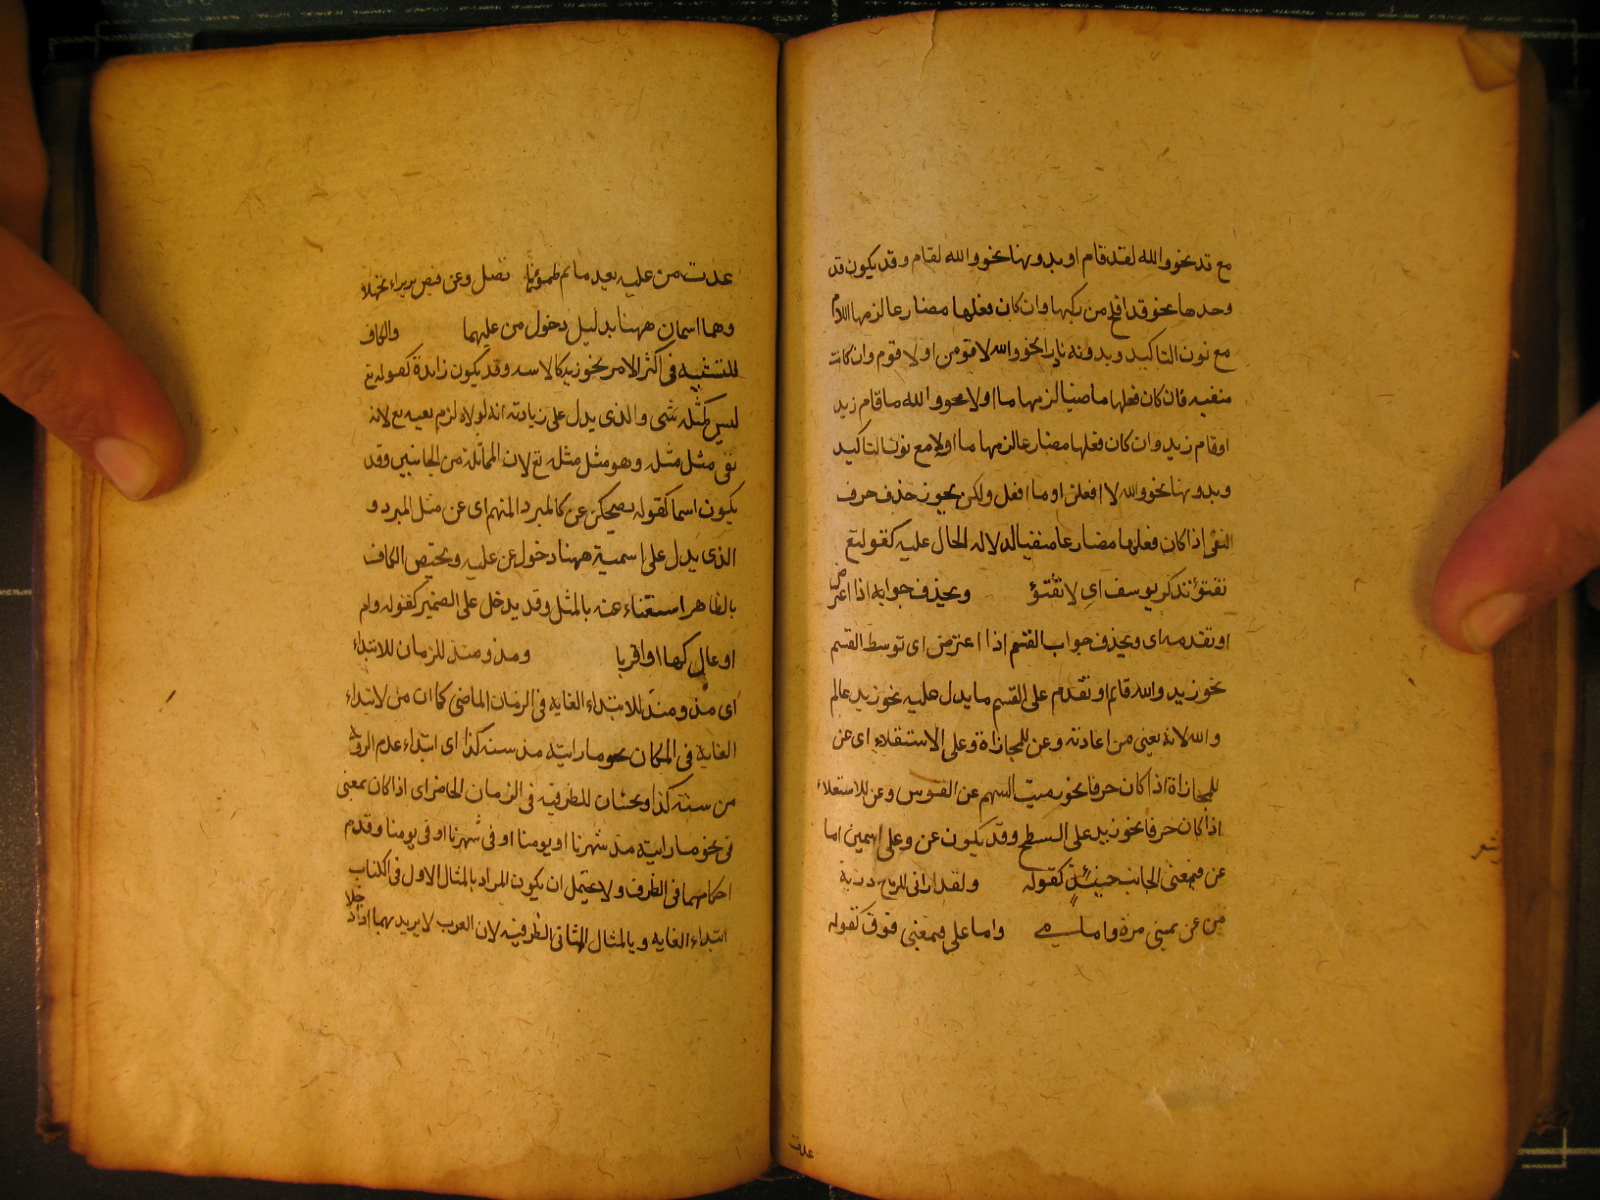 مع قد نحو والله لقد قام او بدونها نحو والله لقام وقد يكون قد
وحدها نحو قد افلح من زكيها وان كان فعلها مضارعا لزمها اللام
مع نون التاكيد وبدونه نادرا نحو والله لاقومن او لاقوم وان كانت
منفيه فان كان فعلها ماضيا لزمها ما او لا نحو والله ما قام زيد
او قام زيد وان كان فعلها مضارعا لزمها ما او لا مع نون التاكيد
وبدونها نحو والله لا افعلن او ما افعل ولكن يجوز حذف حرف
النفى اذا كان فعلها مضارعا منفيا لدلالة الحال عليه كقوله تع
تفتؤ تذكر يوسف اى لا تفتؤ ويحذف جوابه اذا اعترض
او تقدمه اى ويحذف جواب القسم اذا اعترض اى توسط القسم
نحو زيد والله قائم او تقدم على القسم ما يدل عليه نحو زيد عالم
والله لانه يغنى من اعادته وعن للمجازاة وعلى الاستعلاء اى عن
للمجازاة اذا كان حرفا نحو رميت السهم عن القوس وعن للاستعلاء
اذا كان حرفا نحو زيد على السطح وقد يكون عن وعلى اسمين اما
عن فبمعنى الجانب حينئذ كقوله ولقد ارانى للرماح درية
من عن يمينى مرة وامامى واما على فبمعنى فوق كقوله
شعر
غدت
غدت من عليه بعد ما تم ظمؤها تصل وعن قيض بزيزاء مجهل
وهما اسمان ههنا بدليل دخول من عليهما والكاف
للتشبيه فى اكثر الامر نحو زيد كالاسد وقد يكون زايدة كقوله تع
ليس كمثله شى والذى يدل على زيادته انه لولاه لزم نفيه تع لانه
نفى مثل مثله وهو مثل مثله تع لان المماثلة من الجانبين وقد
يكون اسما كقوله يضحكن عن كالبرد المنهم اى عن مثل البرد و
الذى يدل على اسمية ههنا دخول عن عليه ويختص الكاف
بالظاهر استغناء عنه بالمثل وقد يدخل على الضمير كقوله وام
اوعال كها او اقربا ومذ ومنذ للزمان للابتداء
اى مذ ومنذ للابتداء الغاية فى الزمان الماضى كما ان من لابتداء
الغاية فى المكان نحو ما رايته مذ سنة كذا اى ابتداء عدم الروية
من سنة كذا ويجئان للظرفيه فى الزمان الحاضر اى اذا كان بمعنى
فى نحو ما رايته مذ شهرنا او يومنا او فى شهرنا او فى يومنا وقدم
احكامهما فى الظرف ولا يحتمل ان يكون المراد بالمثال الاول فى الكتاب
ابتداء الغاية وبالمثال الثانى الظرفية لان العرب لا يريد بهما اذا دخلا